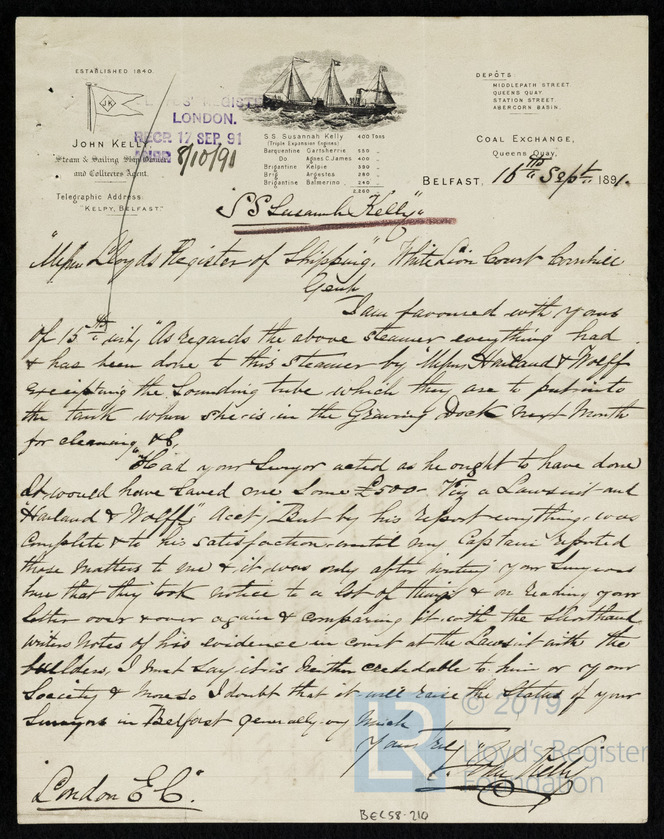 ESTABLISHED 1840.
JK
JOHN KELLY
Steam & Sailing Ship Owner
and Collieries Agent.
Telegraphic Address:
"KELPY, BELFAST."
LLOYDS' REGISTER
LONDON.
RECR 17 SEP. 91
8/10/91
S.S. Susannah Kelly 400 Tons
(Triple Expansion Engines)
Barquentine Cartsherrie 550 "
Do. Agnes C. James 400 "
Brigantine Kelpie 380 "
Brig Argestes 280 "
Brigantine Balmerino 240 "
2,250
DEPÔTS:
MIDDLEPATH STREET.
QUEENS QUAY.
STATION STREET.
ABERCORN BASIN.
COAL EXCHANGE,
Queens Quay,
BELFAST, 16th Sept. 1891.
"SS Susannah Kelly"
"Messrs Lloyds Register of Shipping," White Lion Court Cornhill
Gents
I am favoured with yours
of 15th inst, "As regards the above Steamer everything had
& has been done to this Steamer by "Messrs Harland & Wolff
excepting the Sounding tube which they are to put into
the tank when she is in the Graving Dock next Month
for cleaning &c.
"Had your Surveyor acted as he ought to have done
It would have saved me some £500
a Lawsuit and
Harland & Wolffs" Acct, "But by his report everything was
complete & to his satisfaction until my Captain reported
those matters to me & it was only after
your
that they took notice to a lot of things & on reading your
letter over & over again & comparing it with the Shorthand
writers notes of his evidence in court at the Lawsuit with the
builders, I must say it is
creditable to him or your
Society & more so I doubt that it will raise the Status of your
Surveyors in Belfast generally very much
Yours
John Kelly
"London E.C."
BEL58-210
© 2019
LR
Lloyd's Register
Foundation